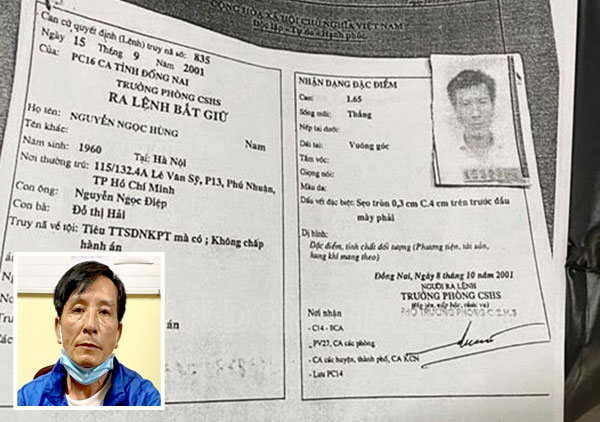 CỘNG HÒA XÃ HỘI CHỦ NGHĨA VIỆT NAM
Độc lập - Tự do - Hạnh phúc
Căn cứ quyết định (Lệnh) truy nã số: 835
Ngày 15 Tháng 9 Năm 2001
Của: PC16 CA TỈNH ĐỒNG NAI
TRƯỞNG PHÒNG CSHS
RA LỆNH BẮT GIỮ
Họ tên: NGUYỄN NGỌC HÙNG Nam
Tên khác:
Năm sinh: 1960 Tại: Hà Nội
Nơi thường trú: 115/132.4A Lê Văn Sỹ, P13, Phú Nhuận,
TP Hồ Chí Minh
Con ông: Nguyễn Ngọc Điệp
Con bà: Đỗ thị Hải
Truy nã về tội: Tiêu TTSDNKPT mà có ; Không chấp
hành án
án
NHẬN DẠNG ĐẶC ĐIỂM
Cao: 1.65
Sống mũi: Thẳng
Nếp tai dưới:
Dái tai: Vuông góc
Tầm vóc:
Giọng nói:
Màu da:
Dấu vết đặc biệt: Sẹo tròn 0,3 cm C.4 cm trên trước đầu
mày phải
Dị hình:
Đặc điểm, tính chất đối tượng (Phương tiện, tài sản,
hung khí mang theo)
Đồng Nai, Ngày 8 tháng 10 năm 2001
NGƯỜI RA LỆNH
TRƯỞNG PHÒNG CSHS
(Họ tên, cấp bậc, chức vụ)
PHÓ TRƯỞNG PHÒNG C.S.H.S
Nơi nhận
- C14 - BCA
- PV27, CA các phòng
- CA các huyện, thành phố, CA KCN
- Lưu PC14